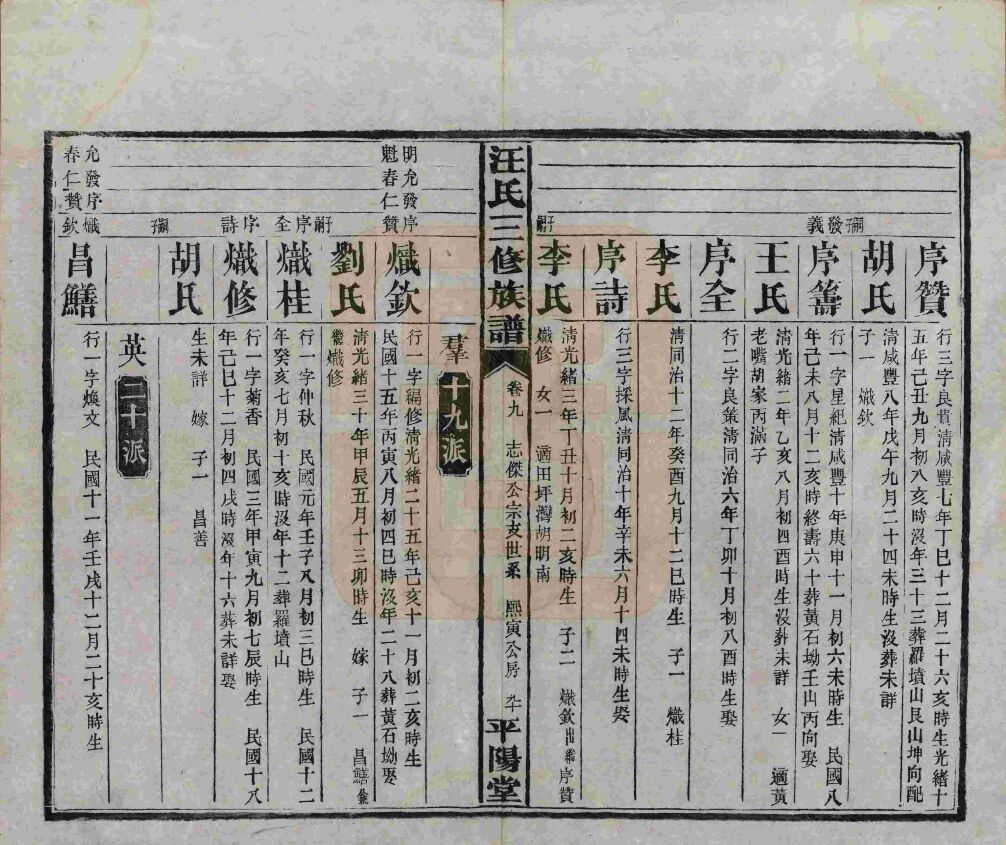 序贊
行三字良貰清咸豐七年丁巳十二月二十六亥時生光緒十
五年己丑九月初八亥時沒年三十三葬羅墳山艮山坤向配
胡氏
清咸豐八年戊午九月二十四未時生沒葬未詳
子一 熾欽
嗣發義
序籌
行一字星紀清咸豐十年庚申十一月初六未時生 民國八
年己未八月十二亥時終壽六十葬黃石坳壬山丙向娶
王氏
清光緒二年乙亥八月初四酉時生沒葬未詳 女一 適黃
老嘴胡家丙滿子
序全
行二字良策清同治六年丁卯十月初八酉時生娶
李氏
清同治十二年癸酉九月十二巳時生 子一 熾桂
序詩
行三字採風清同治十年辛未六月十四未時生娶
李氏
清光緒三年丁丑十月初二亥時生 子二 熾欽出繼序贊
熾修 女一 適田坪灣胡明南
汪氏三修族譜
卷九 志傑公宗支世系 熙寅公房
平陽堂
羣 十九派
明允發序
魁春仁贊
熾欽
行一字編修清光緒二十五年己亥十一月初二亥時生
民國十五年丙寅八月初四巳時沒年二十八葬黃石坳娶
劉氏
清光緒三十年甲辰五月十三卯時生 嫁 子一 昌鱔
繼熾修
嗣序全
熾桂
行一字仲秋 民國元年壬子八月初三巳時生 民國十二
年癸亥七月初十亥時沒年十二葬羅墳山
序詩
熾修
行一字菊香 民國三年甲寅九月初七辰時生 民國十八
年己巳十二月初四戌時沒年十六葬未詳娶
胡氏
生未詳 嫁 子一 昌善
英 二十派
允發序熾
春仁贊欽
昌鱔
行一字煥文 民國十一年壬戌十二月二十亥時生